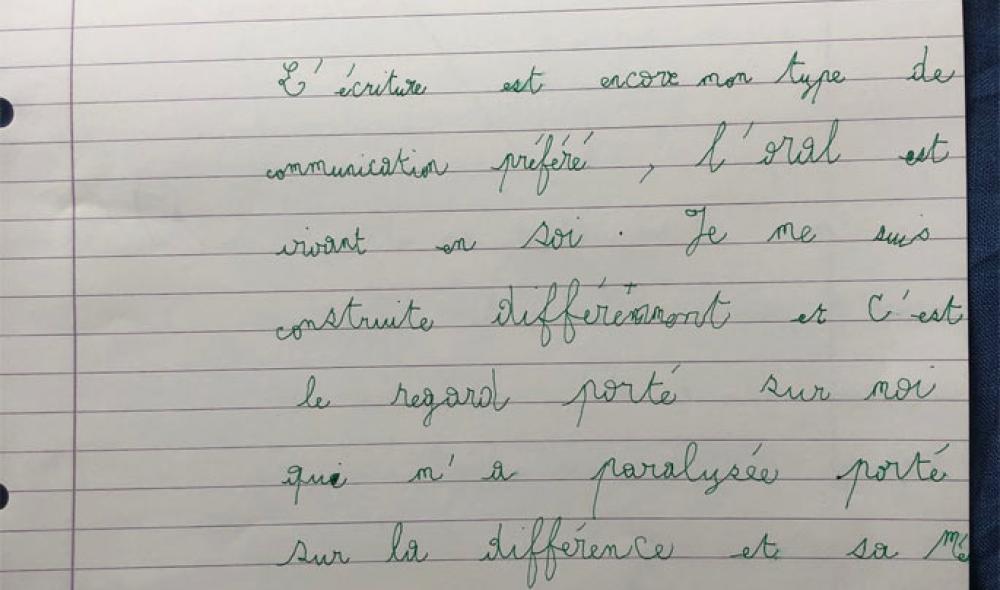 L'écriture est encore mon type de
communication préféré, l'oral est
vivant en soi. Je me suis
construite différemment et c'est
le regard porté sur moi
qui m'a paralysée porté
sur la différence et sa